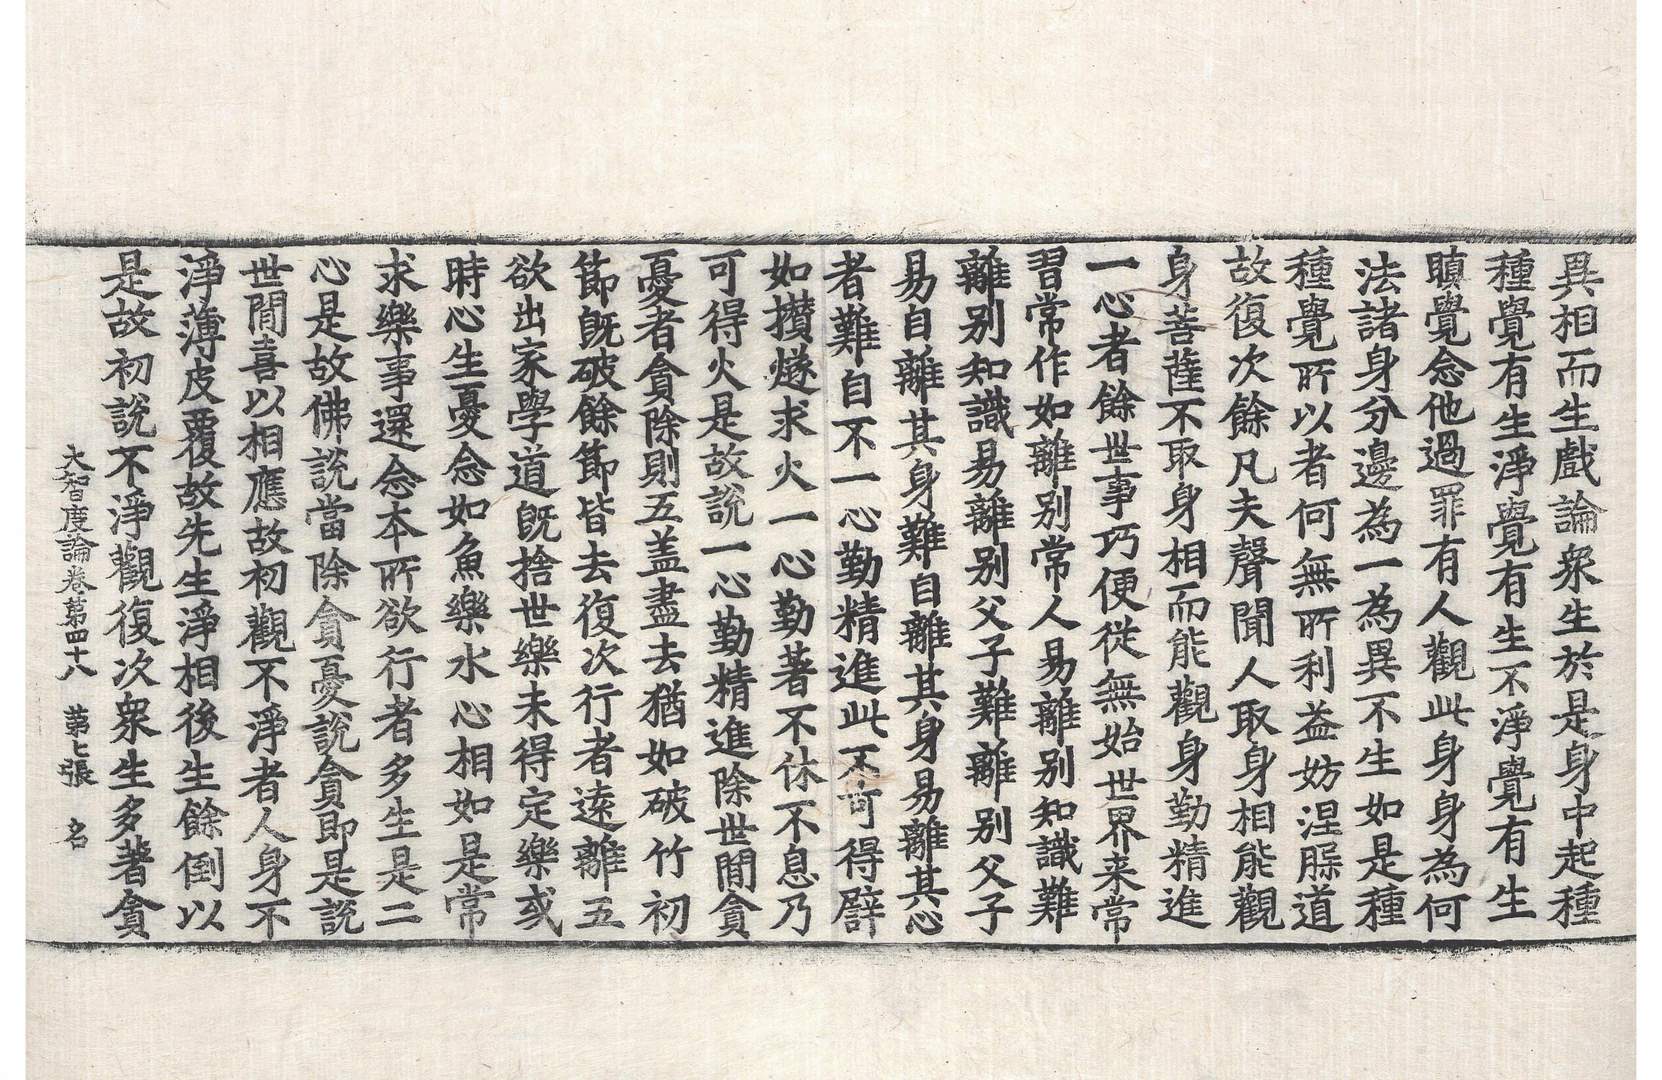 異相而生戲論衆生於是身中起種
種覺有生淨覺有生不淨覺有生
瞋覺念他過罪有人觀此身身為何
法諸身分邊為一為異不生如是種
種覺所以者何無所利益妨涅槃道
故復次餘凡夫聲聞人取身相能觀
身菩薩不取身相而能觀身勤精進
一心者餘世事巧便從無始世界来常
習常作如離別常人易離別知識難
離別知識易離別父子難離別父子
易自離其身難自離其身易離其心
者難自不一心勤精進此不可得譬
如攅燧求火一心勤著不休不息乃
可得火是故說一心勤精進除世閒貪
憂者貪除則五盖盡去猶如破竹初
節旣破餘節皆去復次行者逺離五
欲出家學道旣捨世樂未得定樂或
時心生憂念如魚樂水心相如是常
求樂事還念本所欲行者多生是二
心是故佛說當除貪憂說貪即是說
世閒喜以相應故初觀不淨者人身不
淨薄皮覆故先生淨相後生餘倒以
是故初說不淨觀復次衆生多著貪
大智度論卷第四十八 第七張 名